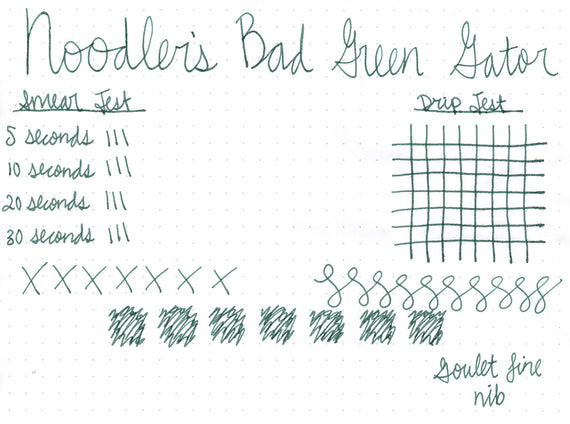 Noodler's Bad Green Gator
Smear Test
Drip Test
5 seconds
10 seconds
20 seconds
30 seconds
X X X X X X X
Goulet fine
nib